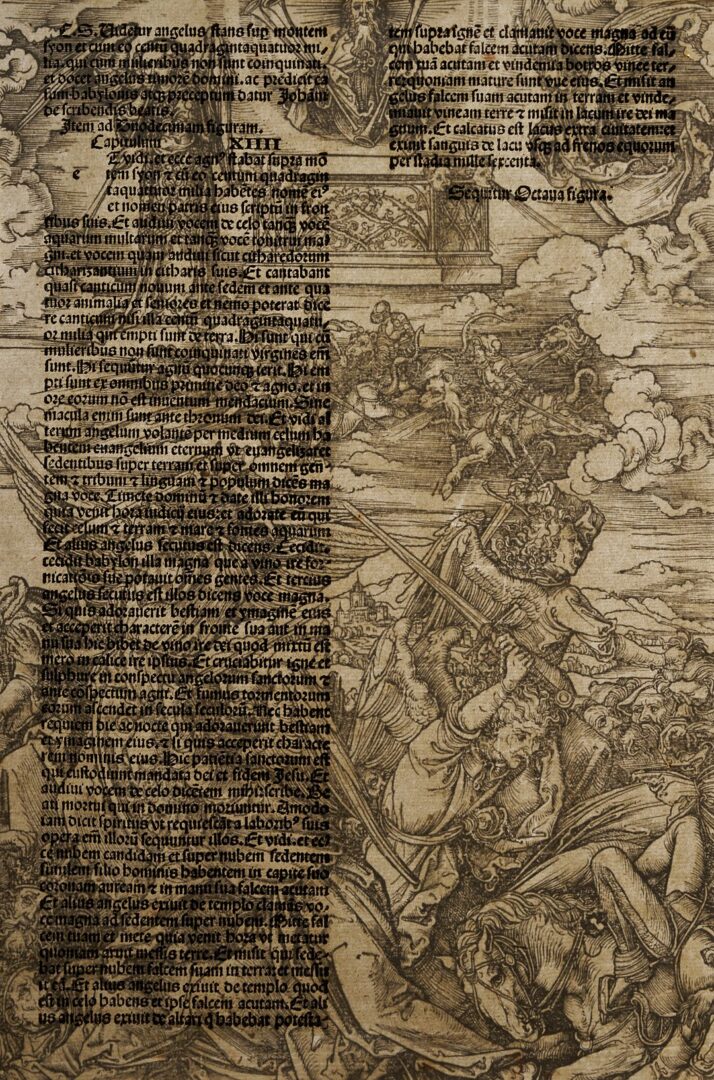 E.S. Videtur angelus stans sup̄ montem
syon et cum eo centū quadragintaquatuor mi⸗
lia. qui cum mulieribus non sunt coinquinati.
et docet angelus timorē domini. ac predicit ca
sum babylonis atq̨ preceptum datur Johāni
de scribendis beatis.
Item ad Duodecimam figuram.
Capitulum XIIII
Et vidi. et ecce agn⁹ stabat supra mō
tem syon ⁊ cū eo centum quadragin
taquattuor milia habētes nomē ei⁹
et nomen patris eius scriptū in fron
tibus suis. Et audiui vocem de celo tanq̨ vocē
aquarum multarum et tanq̨ vocē tonitrui ma⸗
gni. et vocem quam audiui sicut citharedorum
citharizantium in citharis suis. Et cantabant
quasi canticum nouum ante sedem et ante qua
tuor animalia et seniores et nemo poterat dice
re canticum nisi illa centū quadragintaquatu⸗
or milia qui empti sunt de terra. Hi sunt qui cū
mulieribus non sunt coinquinati virgines em̄
sunt. Hi sequūtur agnū quocunq̨ ierit. Hi em
pti sunt ex omnibus primitie deo ⁊ agno. et in
ore eorum nō est inuentum mendacium. Sine
macula enim sunt ante thronum dei. Et vidi al
terum angelum volantē per medium celum ha
bentem euangelium eternum vt euangelizaret
sedentibus super terram et super omnem gen⸗
tem ⁊ tribum ⁊ linguam ⁊ populum dicēs ma
gna voce. Timete dominū ⁊ date illi honorem
quia venit hora iudicij eius: et adorate eū qui
fecit celum ⁊ terram ⁊ mare ⁊ fontes aquarum
Et alius angelus secutus est dicens. Cecidit.
cecidit babylon illa magna que a vino ire for⸗
nicatiōis sue potauit om̄es gentes. Et tercius
angelus secutus est illos dicens voce magna.
Si quis adorauerit bestiam et ymaginē eius
et acceperit characterē in fronte sua aut in ma
nu sua hic bibet de vino ire dei quod mixtū est
mero in calice ire ipsius. Et cruciabitur igne et
sulphure in conspectu angelorum sanctorum ⁊
ante cōspectum agni. Et fumus tormentorum
eorum ascendet in secula seculorū. Nec habent
requiem die ac nocte qui adorauerunt bestiam
et ymaginem eius. ⁊ si quis acceperit characte
rem nominis eius. Hic patiētia sanctorum est
qui custodiunt mandata dei et fidem Jesu. Et
audiui vocem de celo dicētem mihi: scribe. Be
ati mortui qui in domino moriuntur. Amodo
iam dicit spiritus vt requiescāt a laborib⁹ suis
opera em̄ illorū sequuntur illos. Et vidi. et ec⸗
ce nubem candidam et super nubem sedentem
similem filio hominis habentem in capite suo
coronam auream ⁊ in manu sua falcem acutam
Et alius angelus exiuit de templo clamās vo⸗
ce magna ad sedentem super nubem. Mitte fal
cem tuam et mete quia venit hora vt metatur
quoniam aruit messis terre. Et misit qui sede⸗
bat super nubem falcem suam in terrā: et messu
it eā. Et alius angelus exiuit de templo. quod
est in celo habens et ipse falcem acutam. Et ali
us angelus exiuit de altari q̄ habebat potesta⸗
tem supra ignē et clamauit voce magna ad eū
qui habebat falcem acutam dicens. Mitte fal⸗
cem tuā acutam et vindemia botros vinee ter⸗
re: quoniam mature sunt vue eius. Et misit an
gelus falcem suam acutam in terram et vinde⸗
miauit vineam terre ⁊ misit in lacum ire dei ma
gnum. Et calcatus est lacus extra ciuitatem: et
exiuit sanguis de lacu vsq̨ ad frenos equorum
per stadia mille sexcenta.
Sequitur Octaua figura.